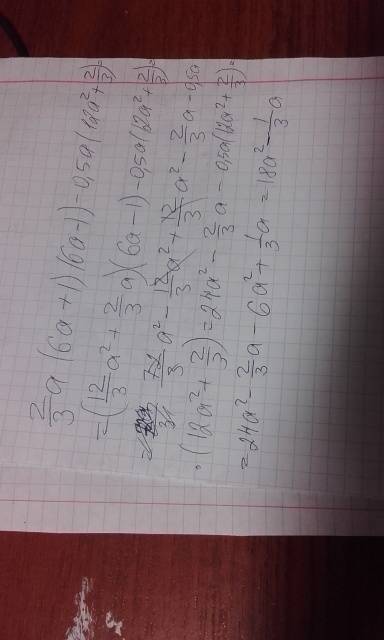 2/3 a (6a+1)(6a-1) - 0,5a(12a² + 2/3) =
= (12/3 a² + 2/3 a)(6a-1) - 0,5a(12a² + 2/3) =
= 72/3 a² - 12/3 a² + 12/3 a² - 2/3 a - 0,5a
· (12a² + 2/3) = 24a² - 2/3 a - 0,5a(12a² + 2/3) =
= 24a² - 2/3 a - 6a² + 1/3 a = 18a² - 1/3 a